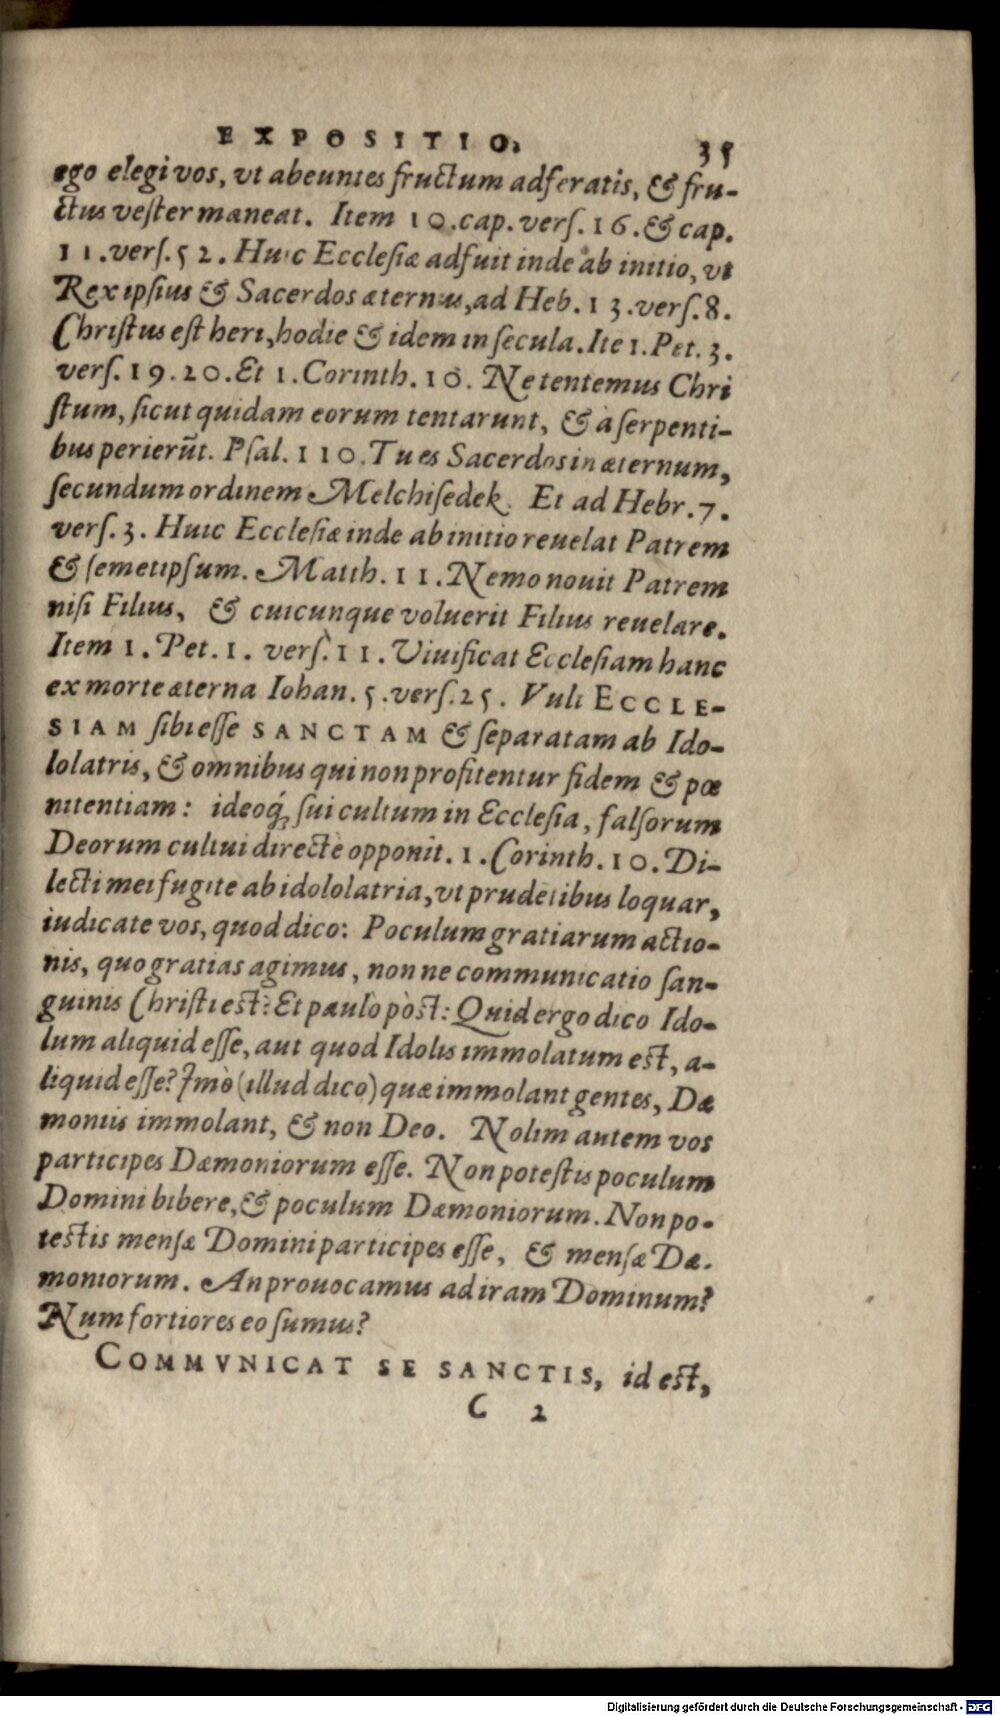 EXPOSITIO. 35
ego elegi vos, vt abeuntes fructum adferatis, & fru-
ctus vester maneat. Item 10.cap.vers.16.& cap.
11.vers.52. Huic Ecclesiæ adfuit inde ab initio, vt
Rex ipsius & Sacerdos æternus, ad Heb.13.vers.8.
Christus est heri, hodie & idem in secula. Ite 1.Pet.3.
vers.19.20.Et 1.Corinth.10. Ne tentemus Chri
stum, sicut quidam eorum tentarunt, & à serpenti-
bus perierũt. Psal.110.Tu es Sacerdos in æternum,
secundum ordinem Melchisedek. Et ad Hebr.7.
vers.3. Huic Ecclesiæ inde ab initio reuelat Patrem
& semetipsum. Matth.11.Nemo nouit Patrem
nisi Filius, & cuicunque voluerit Filius reuelare.
Item 1. Pet.1. vers.11. Viuificat Ecclesiam hanc
ex morte æterna Iohan.5.vers.25. Vult ECCLE-
SIAM sibi esse SANCTAM & separatam ab Ido-
lolatris, & omnibus qui non profitentur fidem & pœ
nitentiam: ideoq́; sui cultum in Ecclesia, falsorum
Deorum cultui directè opponit. 1.Corinth.10. Di-
lecti mei fugite ab idololatria, vt prudẽtibus loquar,
iudicate vos, quod dico: Poculum gratiarum actio-
nis, quo gratias agimus, nonne communicatio san-
guinis Christi est? Et paulò pòst: Quid ergo dico Ido-
lum aliquid esse, aut quod Idolis immolatum est, a-
liquid esse? Imò (illud dico) quæ immolant gentes, Dæ
moniis immolant, & non Deo. Nolim autem vos
participes Dæmoniorum esse. Non potestis poculum
Domini bibere, & poculum Dæmoniorum. Non po-
testis mensæ Domini participes esse, & mensæ Dæ-
moniorum. An prouocamus ad iram Dominum?
Num fortiores eo sumus?
COMMVNICAT SE SANCTIS, id est,
C 2
Digitalisierung gefördert durch die Deutsche Forschungsgemeinschaft - DFG